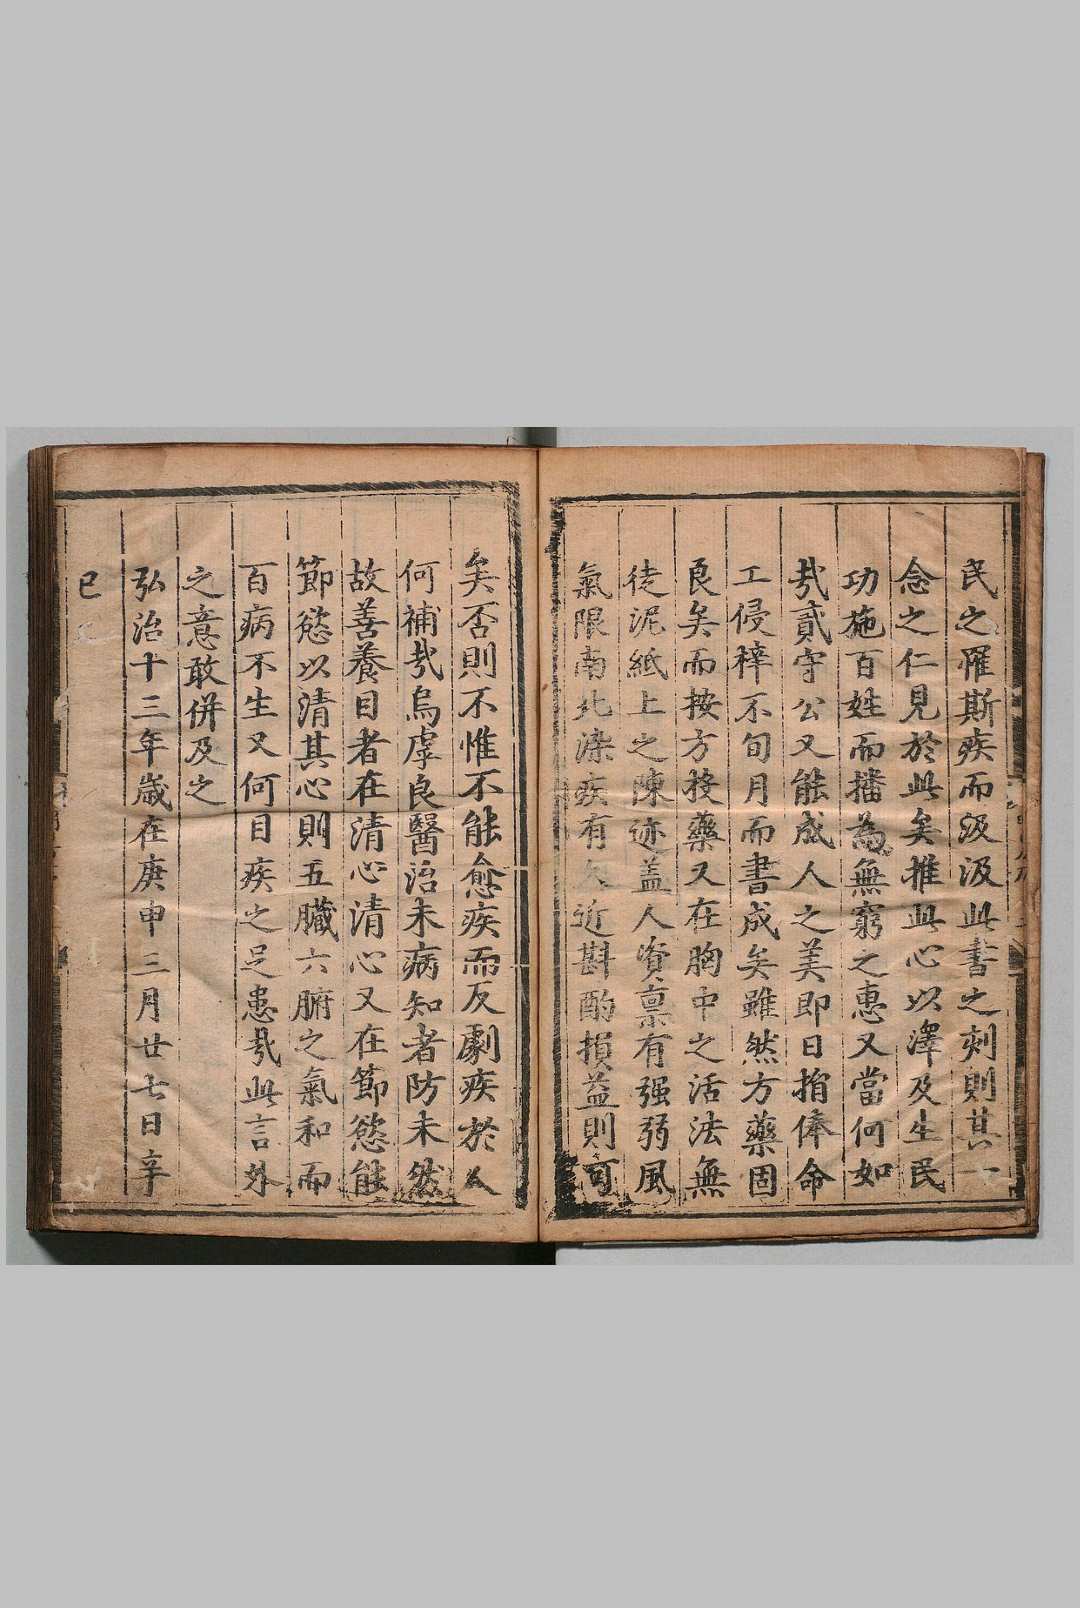 民之罹斯疾而汲汲此書之刻則其一
念之仁見於此矣推此心以澤及生民
功施百姓而播為無窮之惠又當何如
㢤貳守公又能成人之美即日捐俸命
工侵梓不旬月而書成矣雖然方藥固
良矣而按方投藥又在胸中之活法無
徒泥紙上之陳迹盖人資禀有强弱風
氣限南北染疾有久近斟酌損益則可
矣否則不惟不能愈疾而反劇疾於人
何補㢤烏虖良醫治未病知者防未然
故善養目者在清心清心又在節慾能
節慾以清其心則五臟六腑之氣和而
百病不生又何目疾之足患㢤此言外
之意敢併及之
弘治十三年歲在庚申三月廿七日辛
巳